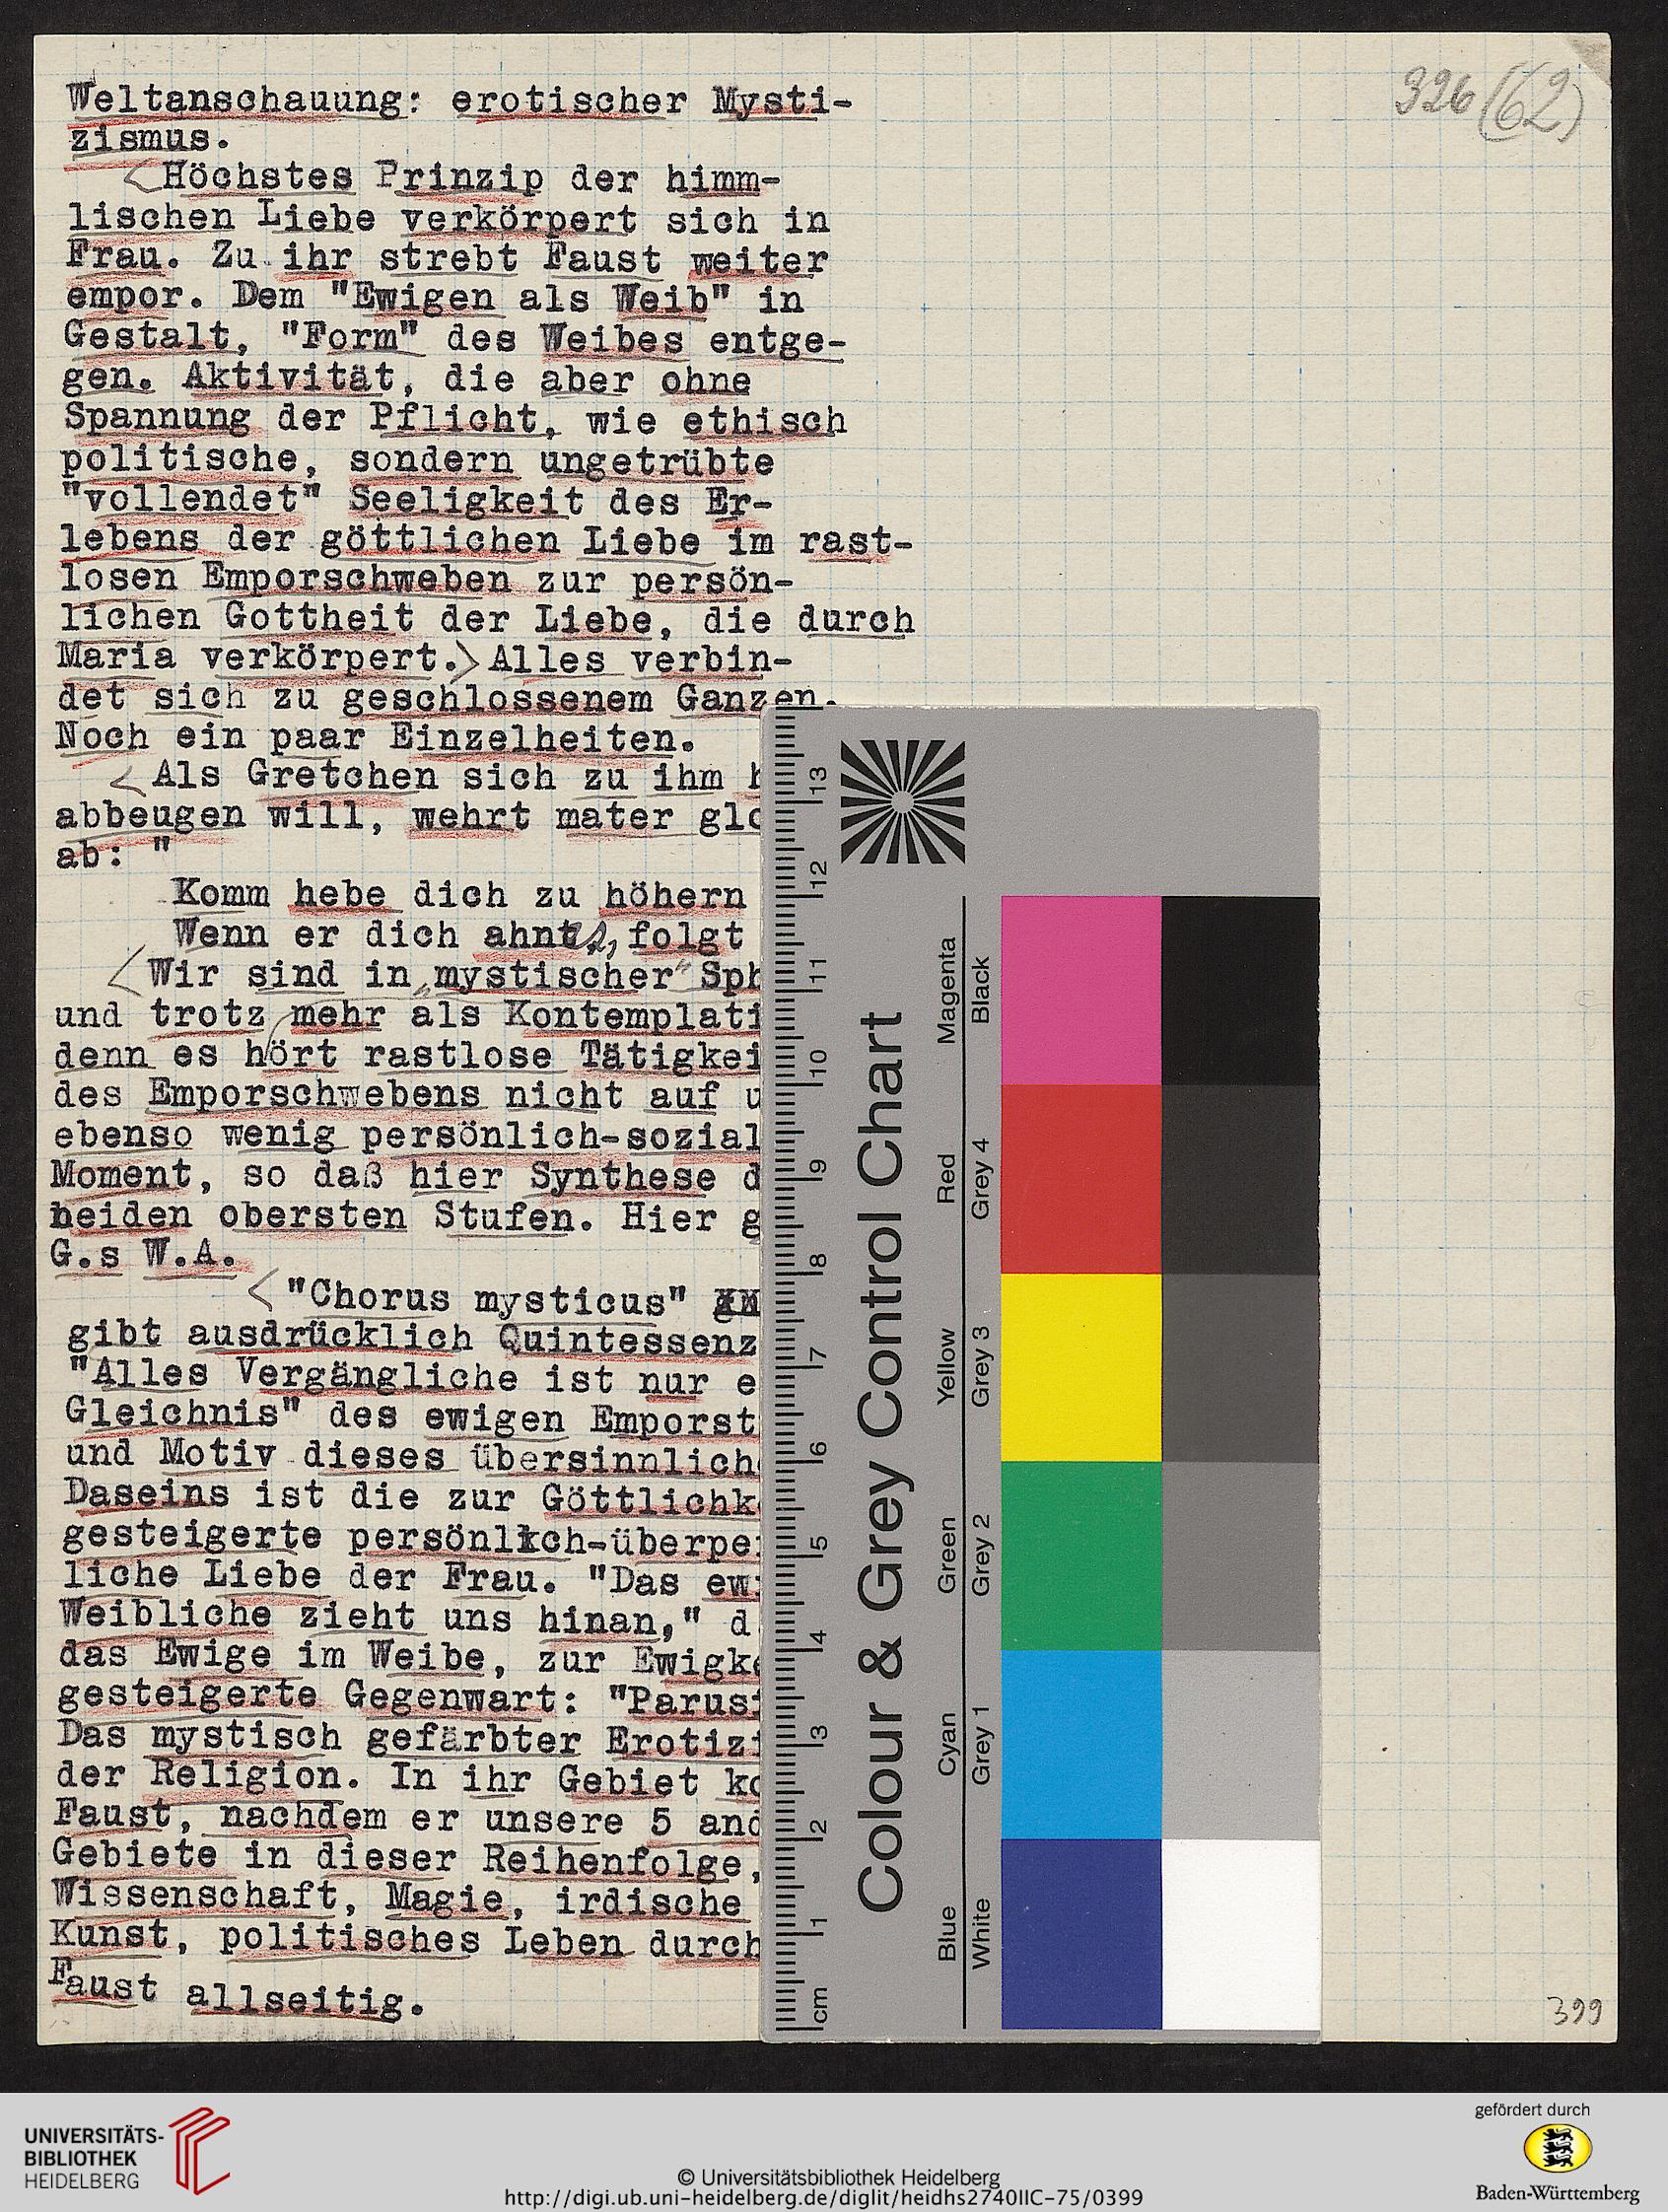 326 (62)
Weltanschauung: erotischer Mysti-
zismus.
<Höchstes Prinzip der himm-
lischen Liebe verkörpert sich in
Frau. Zu ihr strebt Faust weiter
empor. Dem "Ewigen als Weib" in
Gestalt, "Form" des Weibes entge-
gen. Aktivität, die aber ohne
Spannung der Pflicht, wie ethisch
politische, sondern ungetrübte
"vollendet" Seeligkeit des Er-
lebens der göttlichen Liebe im rast-
losen Emporschweben zur persön-
lichen Gottheit der Liebe, die durch
Maria verkörpert.>Alles verbin-
det sich zu geschlossenem Ganzen.
Noch ein paar Einzelheiten.
<Als Gretchen sich zu ihm
abbeugen will, wehrt mater
ab: "
Komm hebe dich zu höhern
Wenn er dich ahnt, folgt
<Wir sind in "mystischer"
und trotz mehr als
denn es hört rastlose
des Emporschwebens nicht auf
ebenso wenig persönlich-sozial
Moment, so daß hier Synthese
beiden obersten Stufen. Hier
G.s W.A.
<"Chorus mysticus"
gibt ausdrücklich Quintessenz
"Alles Vergängliche ist nur
Gleichnis" des ewigen
und Motiv dieses
Daseins ist die zur
gesteigerte
liche Liebe der Frau. "Das
Weibliche zieht uns hinan,"
das Ewige im Weibe, zur
gesteigerte Gegenwart:
Das mystisch gefärbter
der Religion. In ihr Gebiet
Faust, nachdem er unsere 5
Gebiete in dieser Reihenfolge,
Wissenschaft, Magie, irdische
Kunst, politisches Leben durch
Faust allseitig.
399
Colour & Grey Control Chart
Magenta
Red
Yellow
Green
Cyan
Blue
Black
Grey 4
Grey 3
Grey 2
Grey 1
White
13
12
11
10
9
8
7
6
5
4
3
2
1
cm
UNIVERSITÄTS-
BIBLIOTHEK
HEIDELBERG
© Universitätsbibliothek Heidelberg
http://digi.ub.uni-heidelberg.de/diglit/heidhs2740IIC-75/0399
gefördert durch
Baden-Württemberg